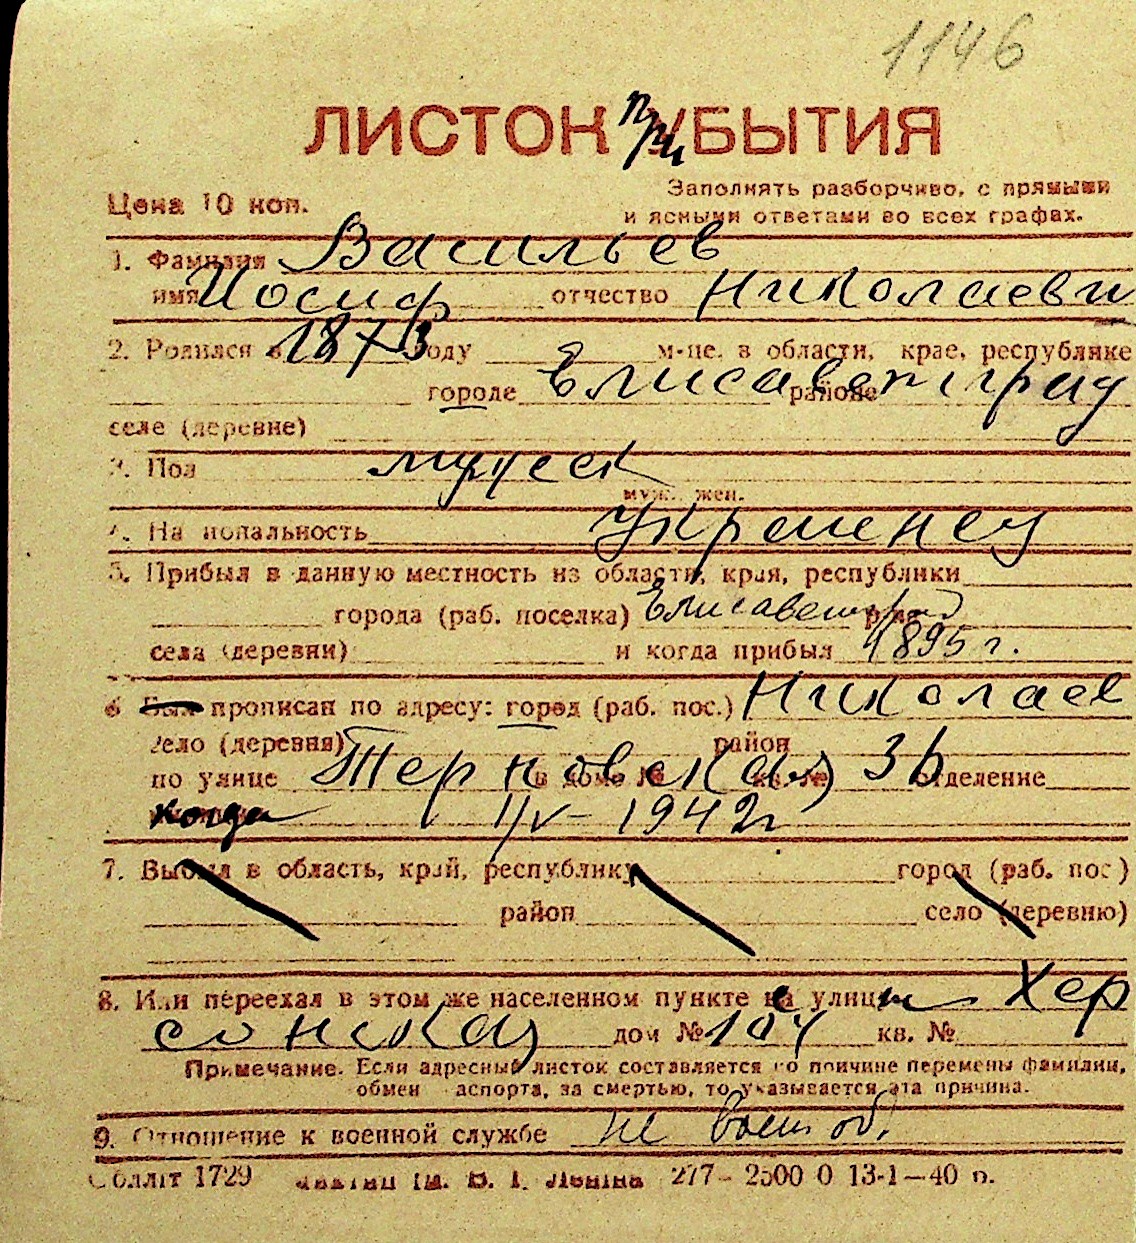 1146
ЛИСТОК приБЫТИЯ
Цена 10 коп.
Заполнять разборчиво, с прямыми
и ясными ответами во всех графах.
1. Фамилия Васильев
имя Иосиф отчество Николаеви
2. Родился в 1873 году м-це. в области, крае, республике
городе Елисаветград районе
селе (деревне)
3. Пол мужск
муж. жен.
4. На иональность Украинец
5. Прибыл в данную местность из области, края, республики
города (раб. поселка) Елисаветград р-на
села (деревни) и когда прибыл 1895 г.
6 Был прописан по адресу: город (раб. пос.) Николаев
село (деревня) район
по улице Терновская в доме № кв. № 36 отделение
когда 1/V - 1942 г
7. Выбыл в область, край, республику город (раб. пос)
район село (деревню)
8. Или переехал в этом же населенном пункте на улицы Хер
сонская дом № 104 кв. №
Примечание. Если адресный листок составляется по причине перемены фамилии,
обмен аспорта, за смертью, то указывается эта причина.
9. Отношение к военной службе не воен об.
Обллiт 1729 iм. В. І. Ленiна 277- 2500 0 13-1-40 р.